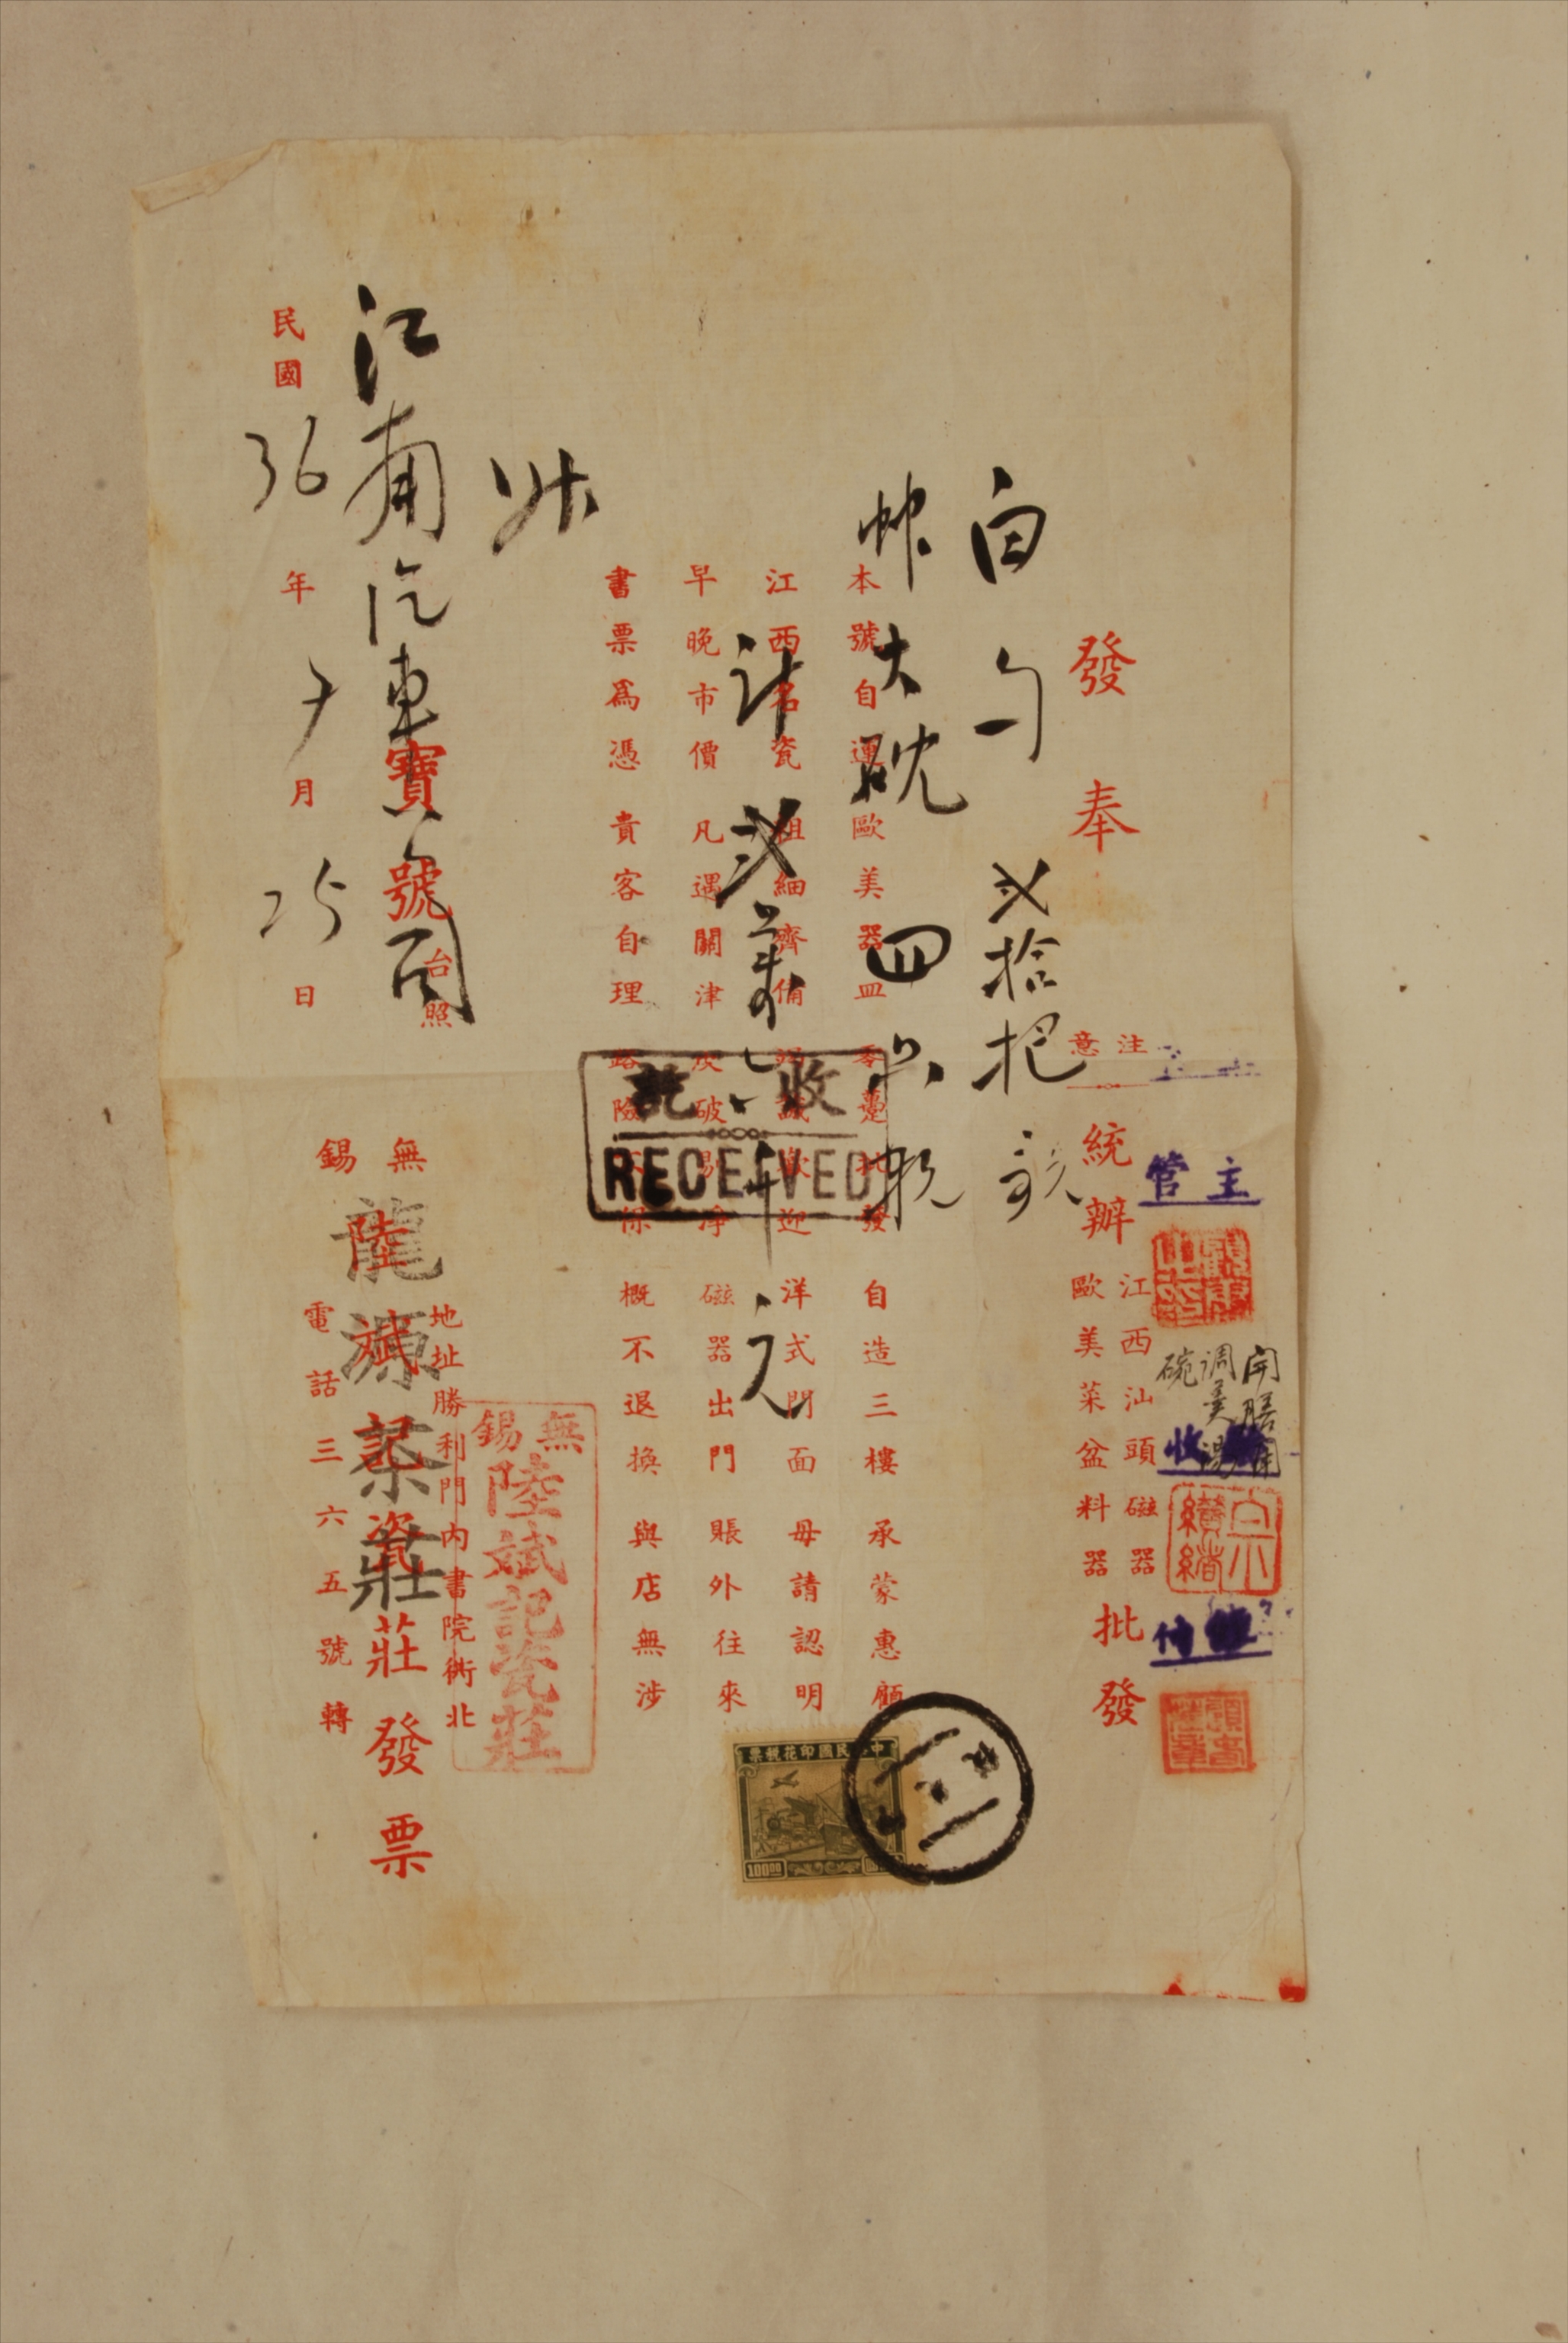 主管
開膳用
调羹湯
碗
收
發奉
注意
統辦
江西汕頭磁器
歐美菜盆料器
批發
白勺 弍拾把
大碗 四只
本號自運歐美器皿零躉批發 自造三樓承蒙惠顧
江西名瓷粗細齊備竭誠歡迎 洋式門面毋請認明
計弍萬 元
早晚市價 凡遇關津 破 淨 磁器出門 賬外往來
書票爲憑 貴客自理 路險不保 概不退換 與店無涉
收訖
RECEIVED
中華民國印花稅票
10000
無錫
陸斌記瓷莊
江南汽車公司
寶號台照
無錫
陸斌記瓷莊發票
龍源泰莊
地址勝利門內書院衖北
電話三六五號轉
民國36年7月25日